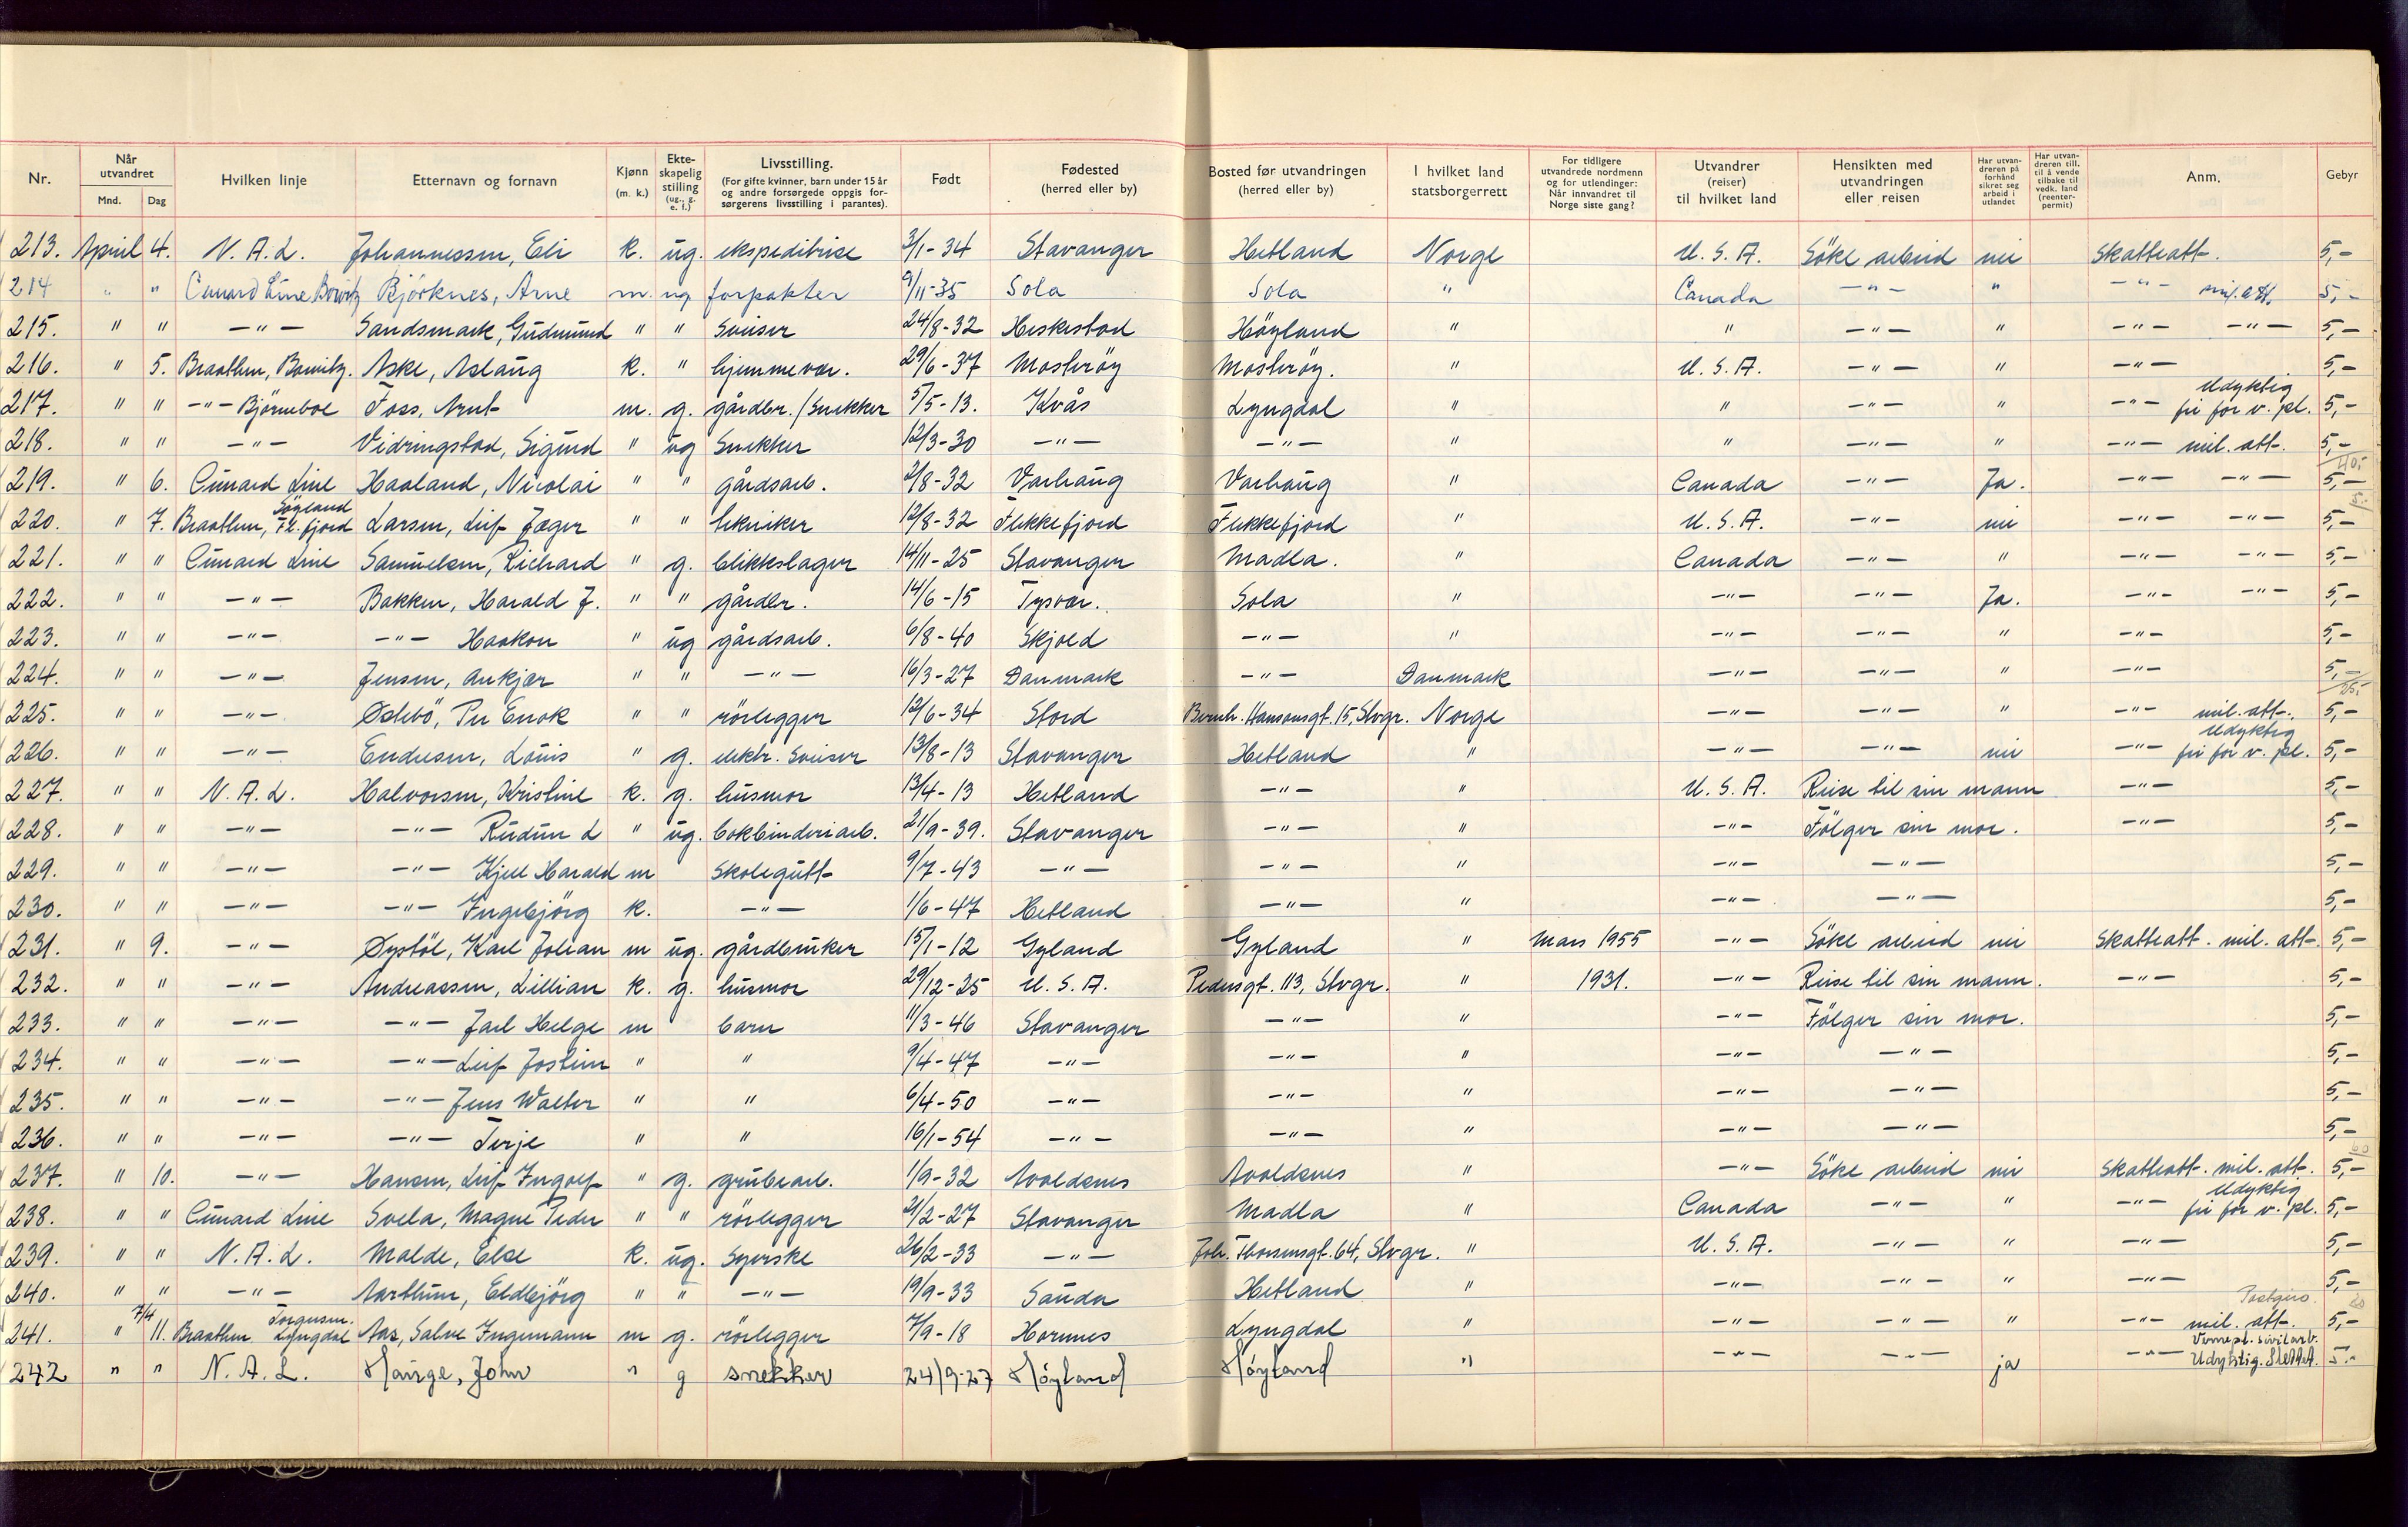 Nr. | Når utvandret Mnd. Dag | Hvilken linje | Etternavn og fornavn | Kjønn (m. k.) | Ekte-skapelig stilling (ug., g. e. f.) | Livsstilling. (For gifte kvinner, barn under 15 år og andre forsørgede oppgis forsørgerens livsstilling i parantes). | Født | Fødested (herred eller by) | Bosted før utvandringen (herred eller by) | I hvilket land statsborgerrett | For tidligere utvandrede nordmenn og for utlendinger: Når innvandret til Norge siste gang? | Utvandrer (reiser) til hvilket land | Hensikten med utvandringen eller reisen | Har utvandreren på forhånd sikret seg arbeid i utlandet | Har utvandreren till. til å vende tilbake til vedk. land (reenter-permit) | Anm. | Gebyr
213. April 4. N. A. L. Johannessen, Eli k. ug. ekspeditrise 3/1-34 Stavanger Hetland Norge U. S. A. Söke arbeid nei Skatteatt. 5,-
214 " " Cunard Line Bowitz Björknes, Arne m. ug forpakter 9/11-35 Sola Sola " Canada -"- " -"- mil. att. 5,-
215. " " -"- Sandsmark, Gudmund " " Sveiser 24/8-32 Heskestad Höyland " " -"- " -"- -"- 5,-
216. " 5. Braathen, Bowitz. Aske, Aslaug k. " hjemmevær. 29/6-37 Mosteröy Mosteröy. " U. S. A. -"- " -"- 5,-
217. " " -"- Björneboe Foss, Arnt m. g. gårdbr. / Snekker 5/5-13. Kvås Lyngdal " " -"- " -"- Udyktig fri for v. pl. 5,-
218. " " -"- Vidringstad, Sigurd " ug Snekker 12/3-30 -"- -"- " " -"- " -"- mil. att. 5,-
40,-
219. " 6. Cunard Line Haaland, Nicolai " " gårdsarb. 2/8-32 Varhaug Varhaug " Canada -"- Ja. -"- -"- 5,-
5.-
220. " 7. Braathen, Söyland Fl. fjord Larsen, Leif Jæger " " tekniker 12/8-32 Flekkefjord Flekkefjord " U. S. A. -"- nei -"- -"- 5,-
221. " " Cunard Line Samuelsen, Richard " g. blikkslager 14/11-25 Stavanger Madla. " Canada -"- " -"- -"- 5,-
222. " " -"- Bakken, Harald J. " " gårdbr. 14/6-15 Tysvær. Sola " -"- -"- Ja. -"- -"- 5,-
223. " " -"- -"- Haakon " ug gårdsarb. 6/8-40 Skjold -"- " -"- -"- " -"- 5,-
224. " " -"- Jensen, Ankjær " " -"- 16/3-27 Danmark -"- Danmark -"- -"- " -"- 5,-
25,-
225. " " -"- Östebö, Per Enok " " rörlegger 12/6-34 Stord Bernh. Hansensgt. 15, Stvgr. Norge -"- -"- " -"- mil. att. 5,-
226. " " -"- Endresen, Louis " g. elektr. Sveiser 13/8-13 Stavanger Hetland " -"- -"- nei -"- Udyktig fri for v. pl. 5,-
227. " " N. A. L. Halvorsen, Kristine k. g. husmor 13/4-13 Hetland -"- " U. S. A. Reise til sin mann -"- 5,-
228. " " -"- -"- Rudun L " ug. bokbinderiarb. 21/9-39. Stavanger -"- " -"- Fölger sin mor. -"- 5,-
229. " " -"- -"- Kjell Harald m Skolegutt 9/7-43 -"- -"- " -"- -"- 5,-
230. " " -"- -"- Ingebjörg k. -"- 1/6-47 Hetland -"- " -"- -"- 5,-
231. " 9. -"- Öystöl, Karl Johan m ug. gårdbruker 15/1-12 Gyland Gyland " Mars 1955 -"- Söke arbeid nei Skatteatt. mil. att. 5,-
232. " " -"- Andreassen, Lillian k. g. husmor 29/12-25 U. S. A. Pedersgt. 113, Stvgr. " 1931. -"- Reise til sin mann. -"- 5,-
233. " " -"- -"- Jarl Helge m barn 11/3-46 Stavanger -"- " -"- Fölger sin mor. 5,-
234. " " -"- -"- Leif Jostein " " 9/4-47 -"- -"- " -"- -"- 5,-
235. " " -"- -"- Jens Walter " " 6/4-50 -"- -"- " -"- -"- 5,-
236. " " -"- -"- Terje " " 16/1-54 -"- -"- " -"- -"- 5,-
60
237. " 10. -"- Hansen, Leif Ingolf " g. grubearb. 1/9-32 Avaldsnes Avaldsnes " -"- Söke arbeid nei Skatteatt. mil. att. 5,-
238. " " Cunard Line Svela, Magne Peder " " rörlegger 21/2-27 Stavanger Madla " Canada -"- " -"- Udyktig fri for v. pl. 5,-
239. " " N. A. L. Malde, Else k. ug. Syerske 26/2-33 -"- Joh. Thorsensgt. 64, Stvgr. " U. S. A. -"- " -"- 5,-
240. " " -"- Aarthun, Eldbjörg " " -"- 19/9-33 Sauda Hetland " -"- -"- " -"- 5,-
Postgiro. 20
241. " 7/4 11. Braathen Torgersen. Lyngdal Aas, Salve Ingemann m g. rörlegger 7/9-18 Hornnes Lyngdal " -"- -"- " -"- mil. att. 5,-
242 " " N. A. L. Hauge, John " g snekker 24/9-27 Höyland Höyland " -"- -"- ja -"- Vernepl. sivilarb. Udyktig. 5.-